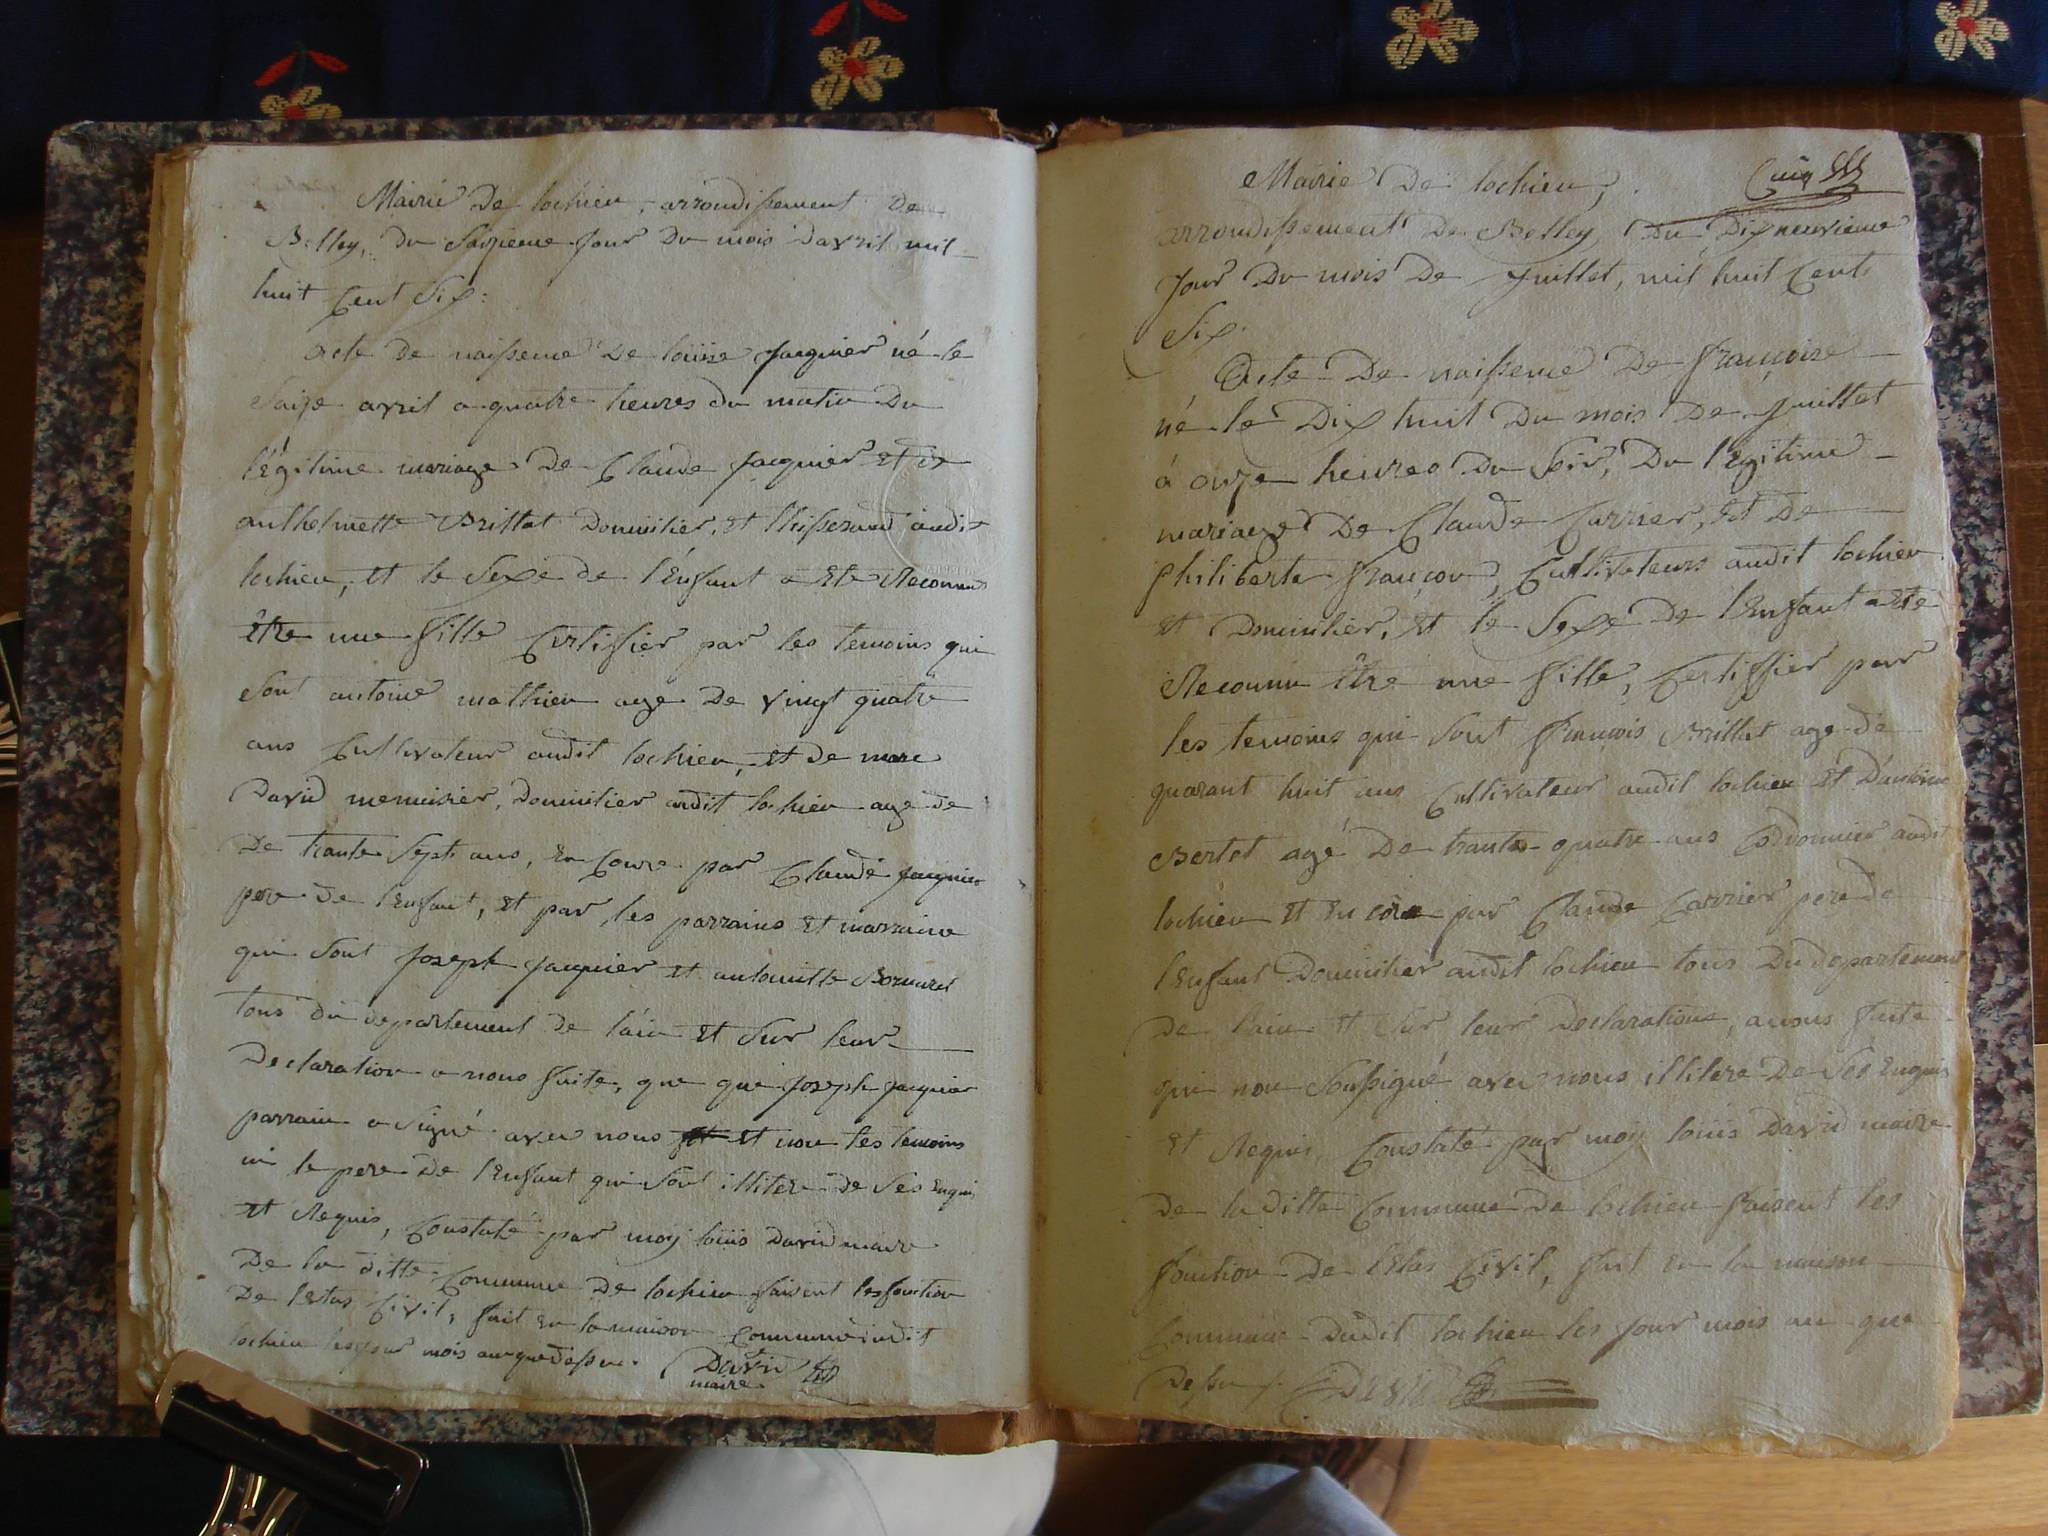 Mairie De lochieu, arrondissement De
Belley, Du Saizieme Jour Du mois Davril mil
huit Cent Six:
Acte de naissence De louise Jacquier né le
Saize avril a quatre heures du matin Du
légitime mariage De Claude Jacquier Et de
anthelmette Brillat Domicilier, Et thisserand audit
lochieu, Et le Sexe de l'Enfant a Ete Reconnu
être une fille Certiffier par les temoins qui
Sont antoine mathieu age De vingt quatre
ans Cultivateur audit lochieu, Et de marc
David menuisier, Domicilier audit lochieu age de
De trante Sept ans, En Core par Claude Jacquier
pere De l'Enfant, Et par les parrains Et marraine
qui Sont Joseph Jacquier Et antoinette
tous du departement De l'ain Et Sur leur
Declaration a nous faite, que que Joseph Jacquier
parrain a Signé avec nous Et non les temoins
ni le pere De l'Enfant qui Sont illitere De Ses Enquis
Et Requis, Constaté par moy louis David maire
De la ditte Commune De lochieu faisent les fonction
De letas Civil, fait En la maison Commune audit
lochieu les jour mois an que dessu.
David
maire
Mairie De lochieu,
Cinq
arrondissement De Belley, Du Dix neuvieme
Jour Du mois De Juillet, mil huit Cent
Six.
Acte De naissence De françoise
né le Dix huit Du mois De Juillet
à onze heures Du Soir, Du légitime
mariage De Claude Carrier, Et De
philiberte françon, Cultivateurs audit lochieu
Et Domicilier, Et le Sexe De l'Enfant a Ete
Reconnu être une fille, Certiffier par
les temoins qui Sont francois Brillat age de
quarant huit ans Cultivateur audit lochieu Et D'antoine
Bertet agé De trante quatre ans Cordonnier audit
lochieu Et En core par Claude Carrier pere de
l'Enfant Domicilier audit lochieu tous Du departement
De l'ain Et Sur leur Declaration, a nous faite
qui non Soussigné avec nous illitere De Ses Enquis
Et Requis, Constaté par moy louis David maire
De la ditte Commune De lochieu faisent les
fonction De l'Etas Civil, fait En la maison
Commune Dudit lochieu les jour mois an que
Dessu